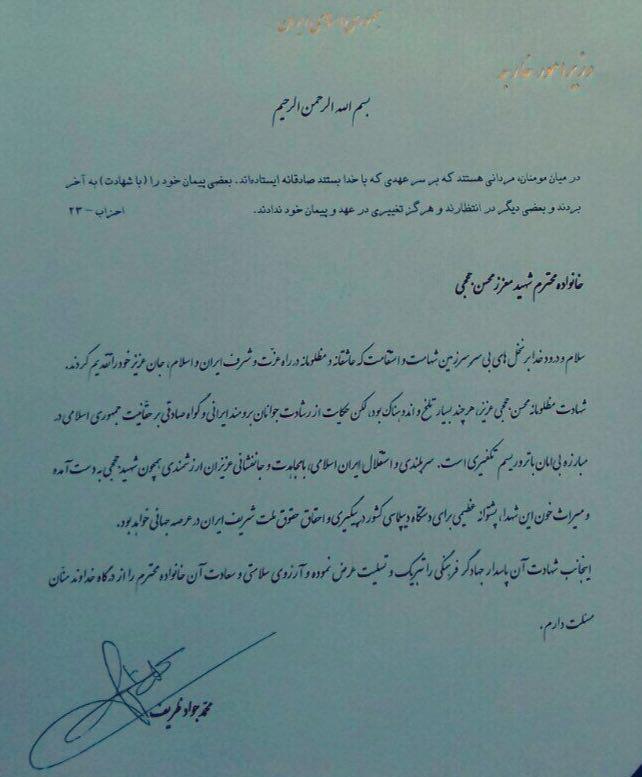 جمهوری اسلامی ایران
وزیر امور خارجه
بسم الله الرحمن الرحیم
در میان مومنان، مردانی هستند که بر سر عهدی که با خدا بستند صادقانه ایستاده‌اند. بعضی پیمان خود را (با شهادت) به آخر
بردند و بعضی دیگر در انتظارند و هرگز تغییری در عهد و پیمان خود ندادند. احزاب – ۲۳
خانواده محترم شهید معزز محسن حججی
سلام و درود خدا بر نخل‌های بی سر سرزمین شهامت و استقامت که عاشقانه و مظلومانه در راه عزت و شرف ایران و اسلام، جان عزیز خود را تقدیم کردند.
شهادت مظلومانه محسن حججی عزیز، هر چند بسیار تلخ و اندوهناک بود، لکن حکایت از رشادت جوانان برومند ایرانی و گواه صادقی بر حقّانیت جمهوری اسلامی در
مبارزه بی‌امان با تروریسم تکفیری است. سربلندی و استقلال ایران اسلامی، با مجاهدت و جانفشانی عزیزان ارزشمندی همچون شهید حججی به دست آمده
و میراث خون این شهدا، پشتوانه عظیمی برای دستگاه دیپلماسی کشور در پیگیری و احقاق حقوق ملت شریف ایران در عرصه جهانی خواهد بود.
اینجانب شهادت آن پاسدار جهادگر فرهنگی را تبریک و تسلیت عرض نموده و آرزوی سلامتی و سعادت آن خانواده محترم را از درگاه خداوند منّان
مسئلت دارم.
محمد جواد ظریف